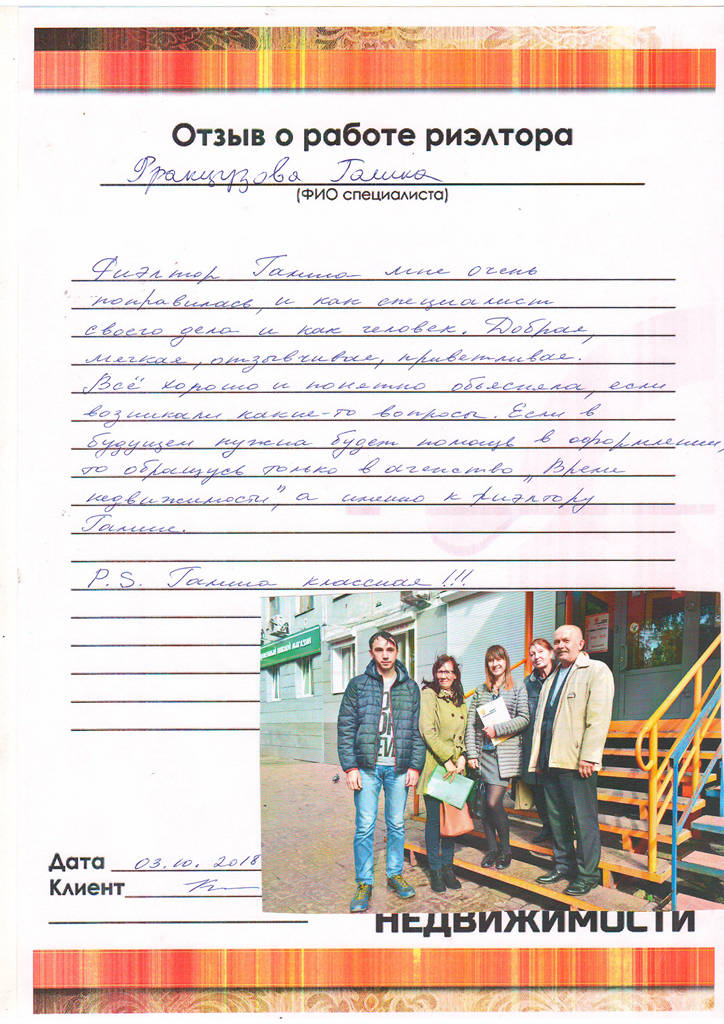 Отзыв о работе риэлтора
Французова Галина
(ФИО специалиста)
Риэлтор Галина мне очень
понравилась, и как специалист
своего дела и как человек. Добрая,
мягкая, отзывчивая, приветливая.
Всё хорошо и понятно объясняла, если
возникали какие-то вопросы. Если в
будущем нужна будет помощь в оформлении,
то обращусь только в агенство „Время
недвижимости", а именно к риэлтору
Галине.
P.S. Галина классная!!!
КНИЖНЫЙ МАГАЗИН
Дата 03.10.2018
Клиент
НЕДВИЖИМОСТИ